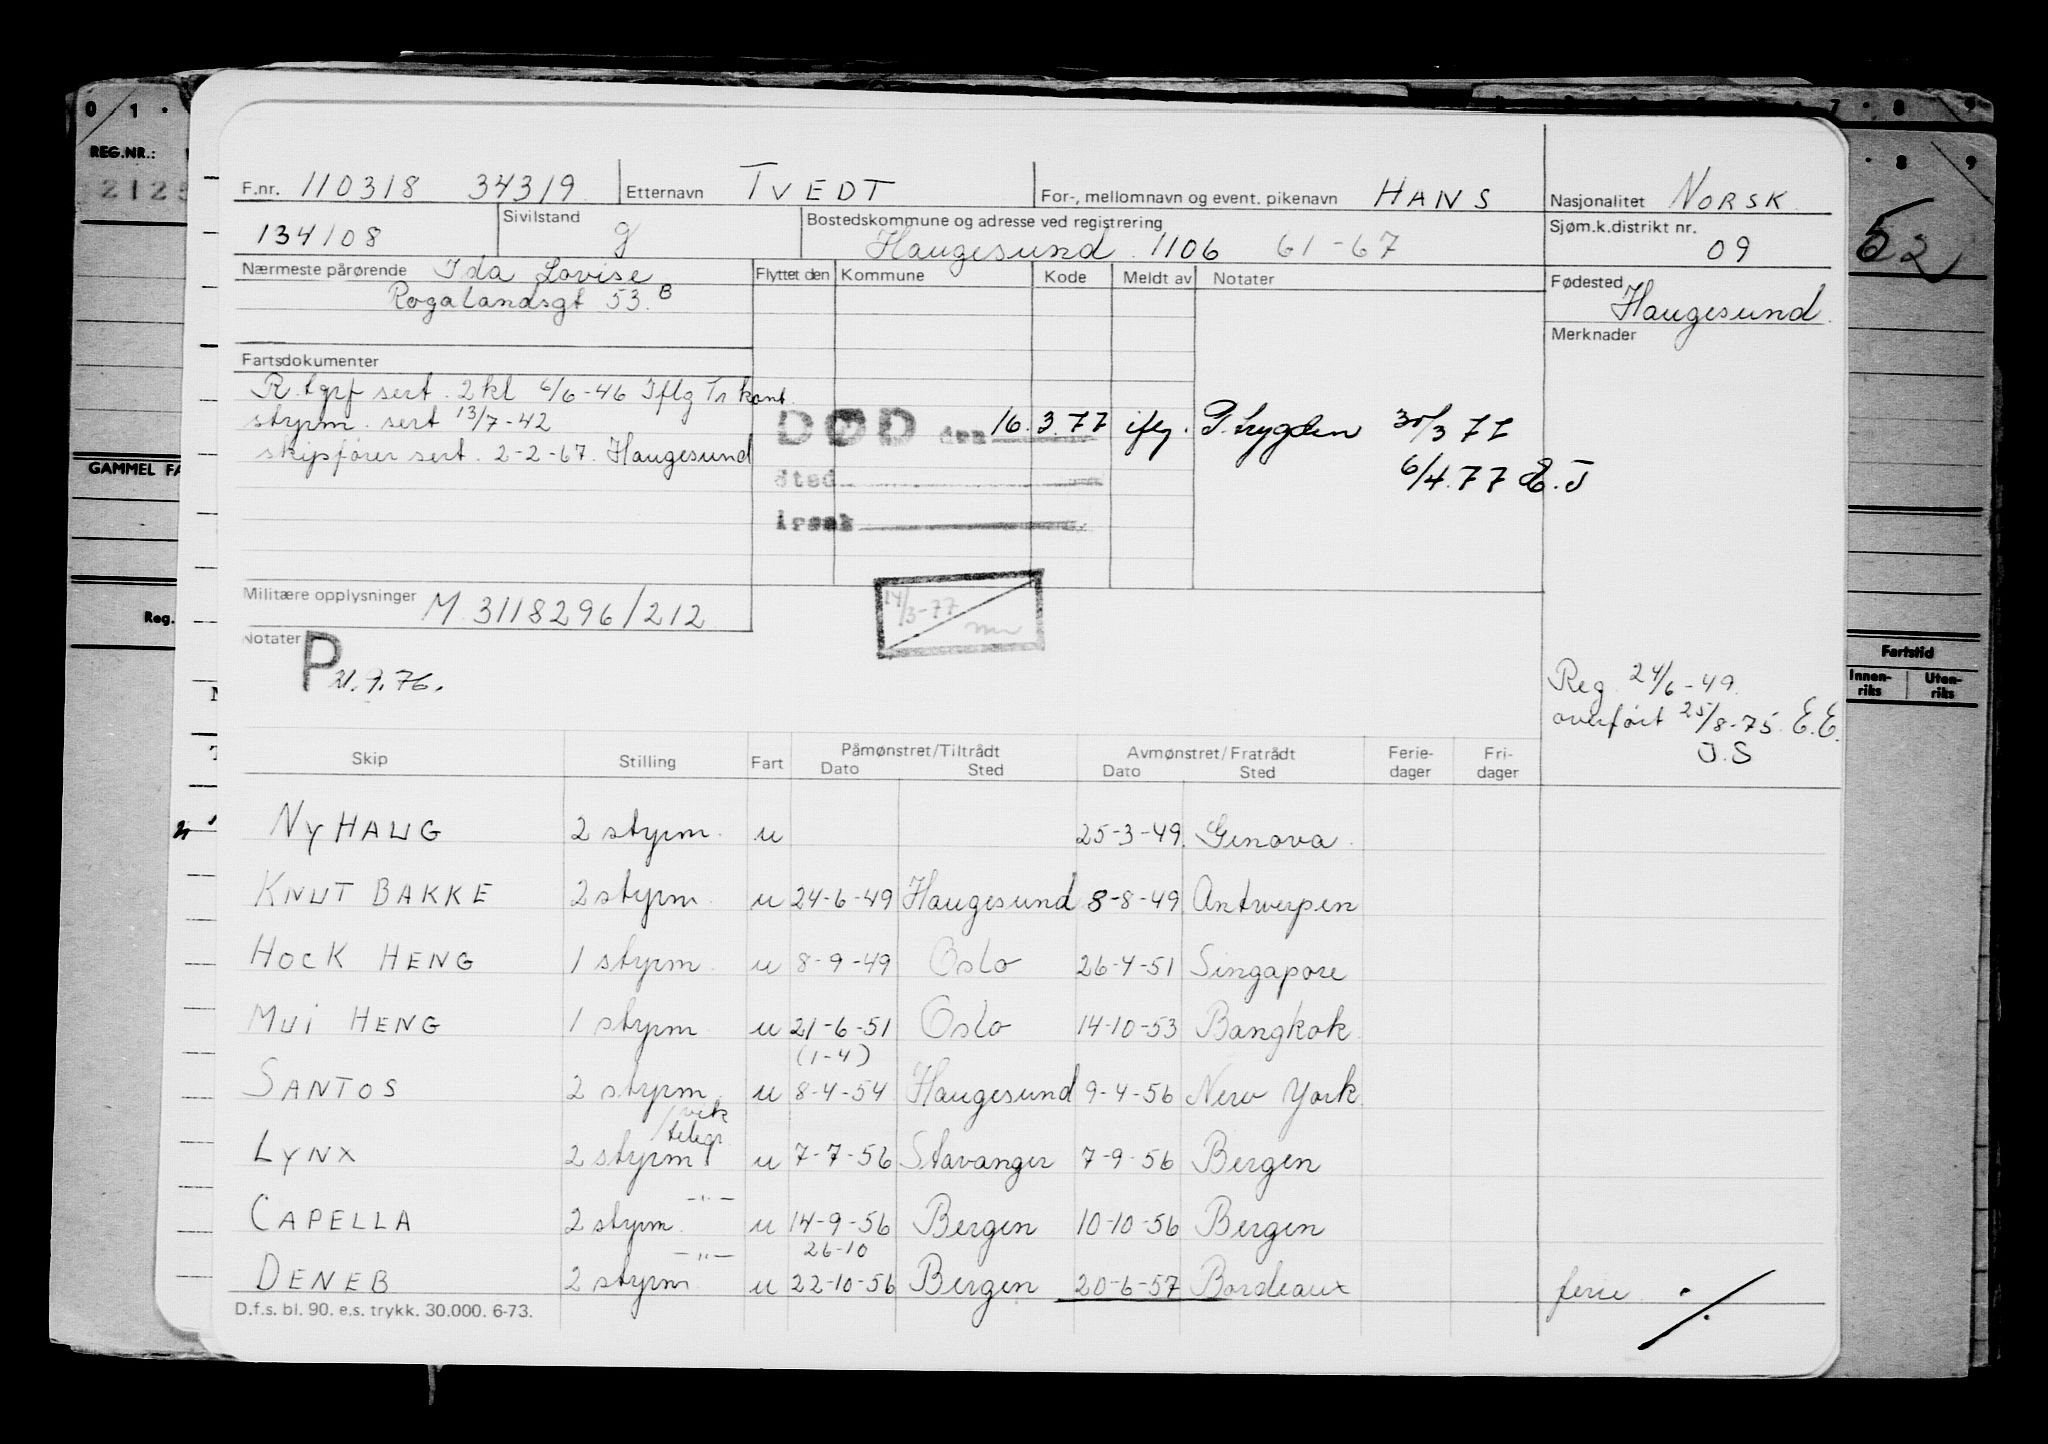 0 1 · 7 · 8 9
REG.NR.:
2125
· 8 9
52
GAMMEL FA
Reg.
Fartstid
Innen-riks Uten-riks
F.nr. 110318 34319 Etternavn TVEDT For-, mellomnavn og event. pikenavn HANS Nasjonalitet NORSK
134108 Sivilstand g Bostedskommune og adresse ved registrering Haugesund 1106 61-67 Sjøm.k.distrikt nr. 09
Nærmeste pårørende Ida Lovise Flyttet den Kommune Kode Meldt av Notater Fødested Haugesund
Rogalandsgt 53.B
Merknader
Fartsdokumenter
R.tgrf sert. 2kl 6/6-46 Iflg Tr kont.
styrm. sert 13/7-42
skipsfører sert. 2-2-67. Haugesund
DØD den 16.3.77 ifg. P.trygden 30/3 77
6/4.77 E.J
Militære opplysninger M.3118296/212
14/3-77
Notater P 21.9.76.
Reg 24/6-49.
overført 25/8-75. E.E.
J.S
Skip Stilling Fart Påmønstret/Tiltrådt Dato Sted Avmønstret/Fratrådt Dato Sted Ferie-dager Fri-dager
NYHAUG 2 styrm. u 25-3-49. Genova
KNUT BAKKE 2 styrm. u 24-6-49 Haugesund 8-8-49 Antwerpen
HOCK HENG 1 styrm. u 8-9-49 Oslo 26-4-51 Singapore
MUI HENG 1 styrm. u 21-6-51 Oslo 14-10-53 Bangkok
(1-4)
SANTOS 2 styrm. u 8-4-54 Haugesund 9-4-56 New York
/vik telegr.
LYNX 2 styrm u 7-7-56 Stavanger 7-9-56 Bergen
-"-
CAPELLA 2 styrm. u 14-9-56 Bergen 10-10-56 Bergen
-"- 26-10
DENEB 2 styrm. u 22-10-56 Bergen 20-6-57 Bordeaux ferie ./.
D.f.s. bl. 90. e.s. trykk. 30.000. 6-73.